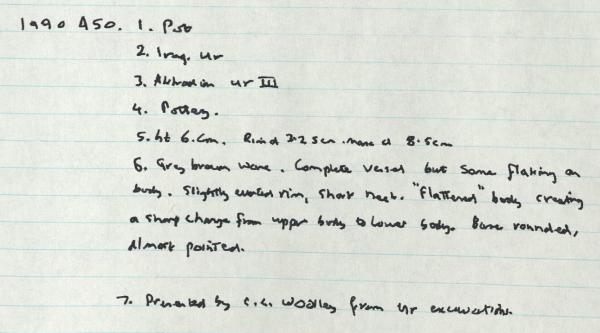 1990 A50. 1. Pot
2. Iraq. Ur
3. Akkadian Ur III
4. Pottery.
5. ht 6.cm. Rim d 3.2 5cm. max d 8.5cm
6. Grey brown ware. Complete vessel but some flaking on
body. Slightly everted rim, short neck. "flattened" body creating
a sharp change from upper body to lower body. Base rounded,
almost pointed.
7. Presented by C.L. Woolley from Ur excavations.